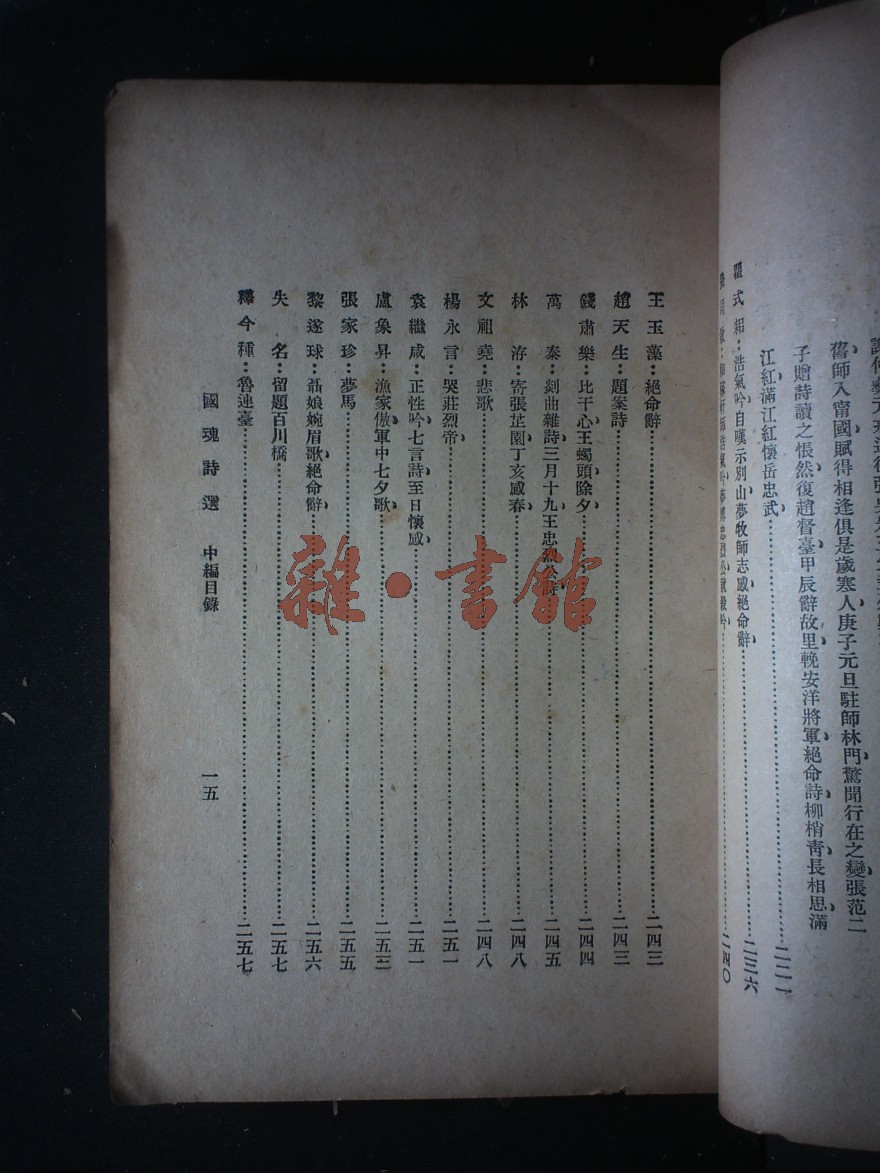 舊師入甯國賦得相逢俱是歲寒人庚子元旦駐師林門驚聞行在之變張范二
子贈詩讀之悵然復趙督臺甲辰辭故里輓安洋將軍絕命詩柳梢青長相思滿
江紅滿江紅懷岳忠武……二二一
瞿式耜：浩氣吟自嘆示別山夢牧師志感絕命辭……二三六
二四〇
王玉藻：絕命辭……二四三
趙天生：題案詩……二四三
錢肅樂：比干心王蠋頭除夕……二四四
萬泰：剡曲雜詩三月十九王忠烈公詩……二四五
林洊：寄張芷園丁亥感春……二四八
文祖堯：悲歌……二四八
楊永言：哭莊烈帝……二五一
袁繼咸：正性吟七言詩至日懷感……二五一
盧象昇：漁家傲軍中七夕歌……二五三
張家珍：夢馬……二五五
黎遂球：荔娘婉眉歌絕命辭……二五六
失名：留題百川橋……二五七
釋今種：魯連臺……二五七
國魂詩選　中編目錄　一五
雜·書館